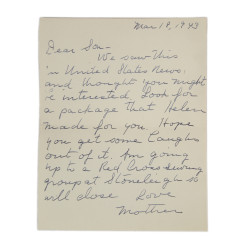 Mar 18, 1943
Dear Son -
We saw this
in United States News
and thought you might
be interested. Look for
a package that Helen
made for you. Hope
you get some laughs
out of it. Am going
up to a Red Cross Sewing
group at Stoneleigh so
will close Love
Mother